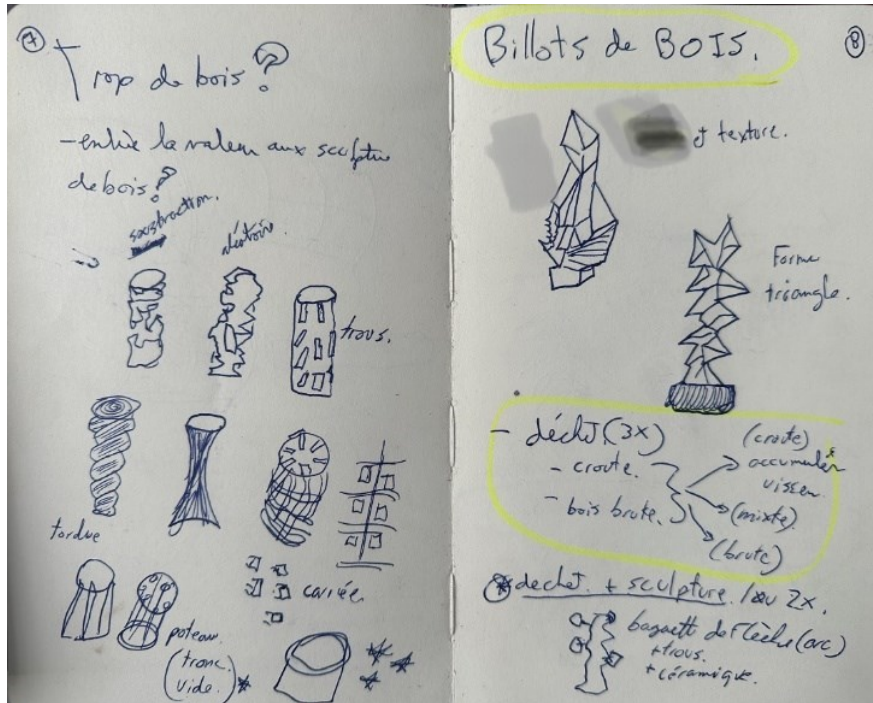 7
Trop de bois?
- enlève la valeur aux sculpture
de bois?
soustraction.
aléatoire.
trous.
tordue
carrée
poteau.
(tronc.
vide.)
8
Billots de BOIS.
et texture.
Forme
triangle.
- déchet (3x)
- croute.
- bois brute.
(croute)
accumuler
visser
(mixte)
(brute)
dechet. + sculpture. 1 ou 2x.
baguett de Flèche (arc)
+ trous.
+ céramique.